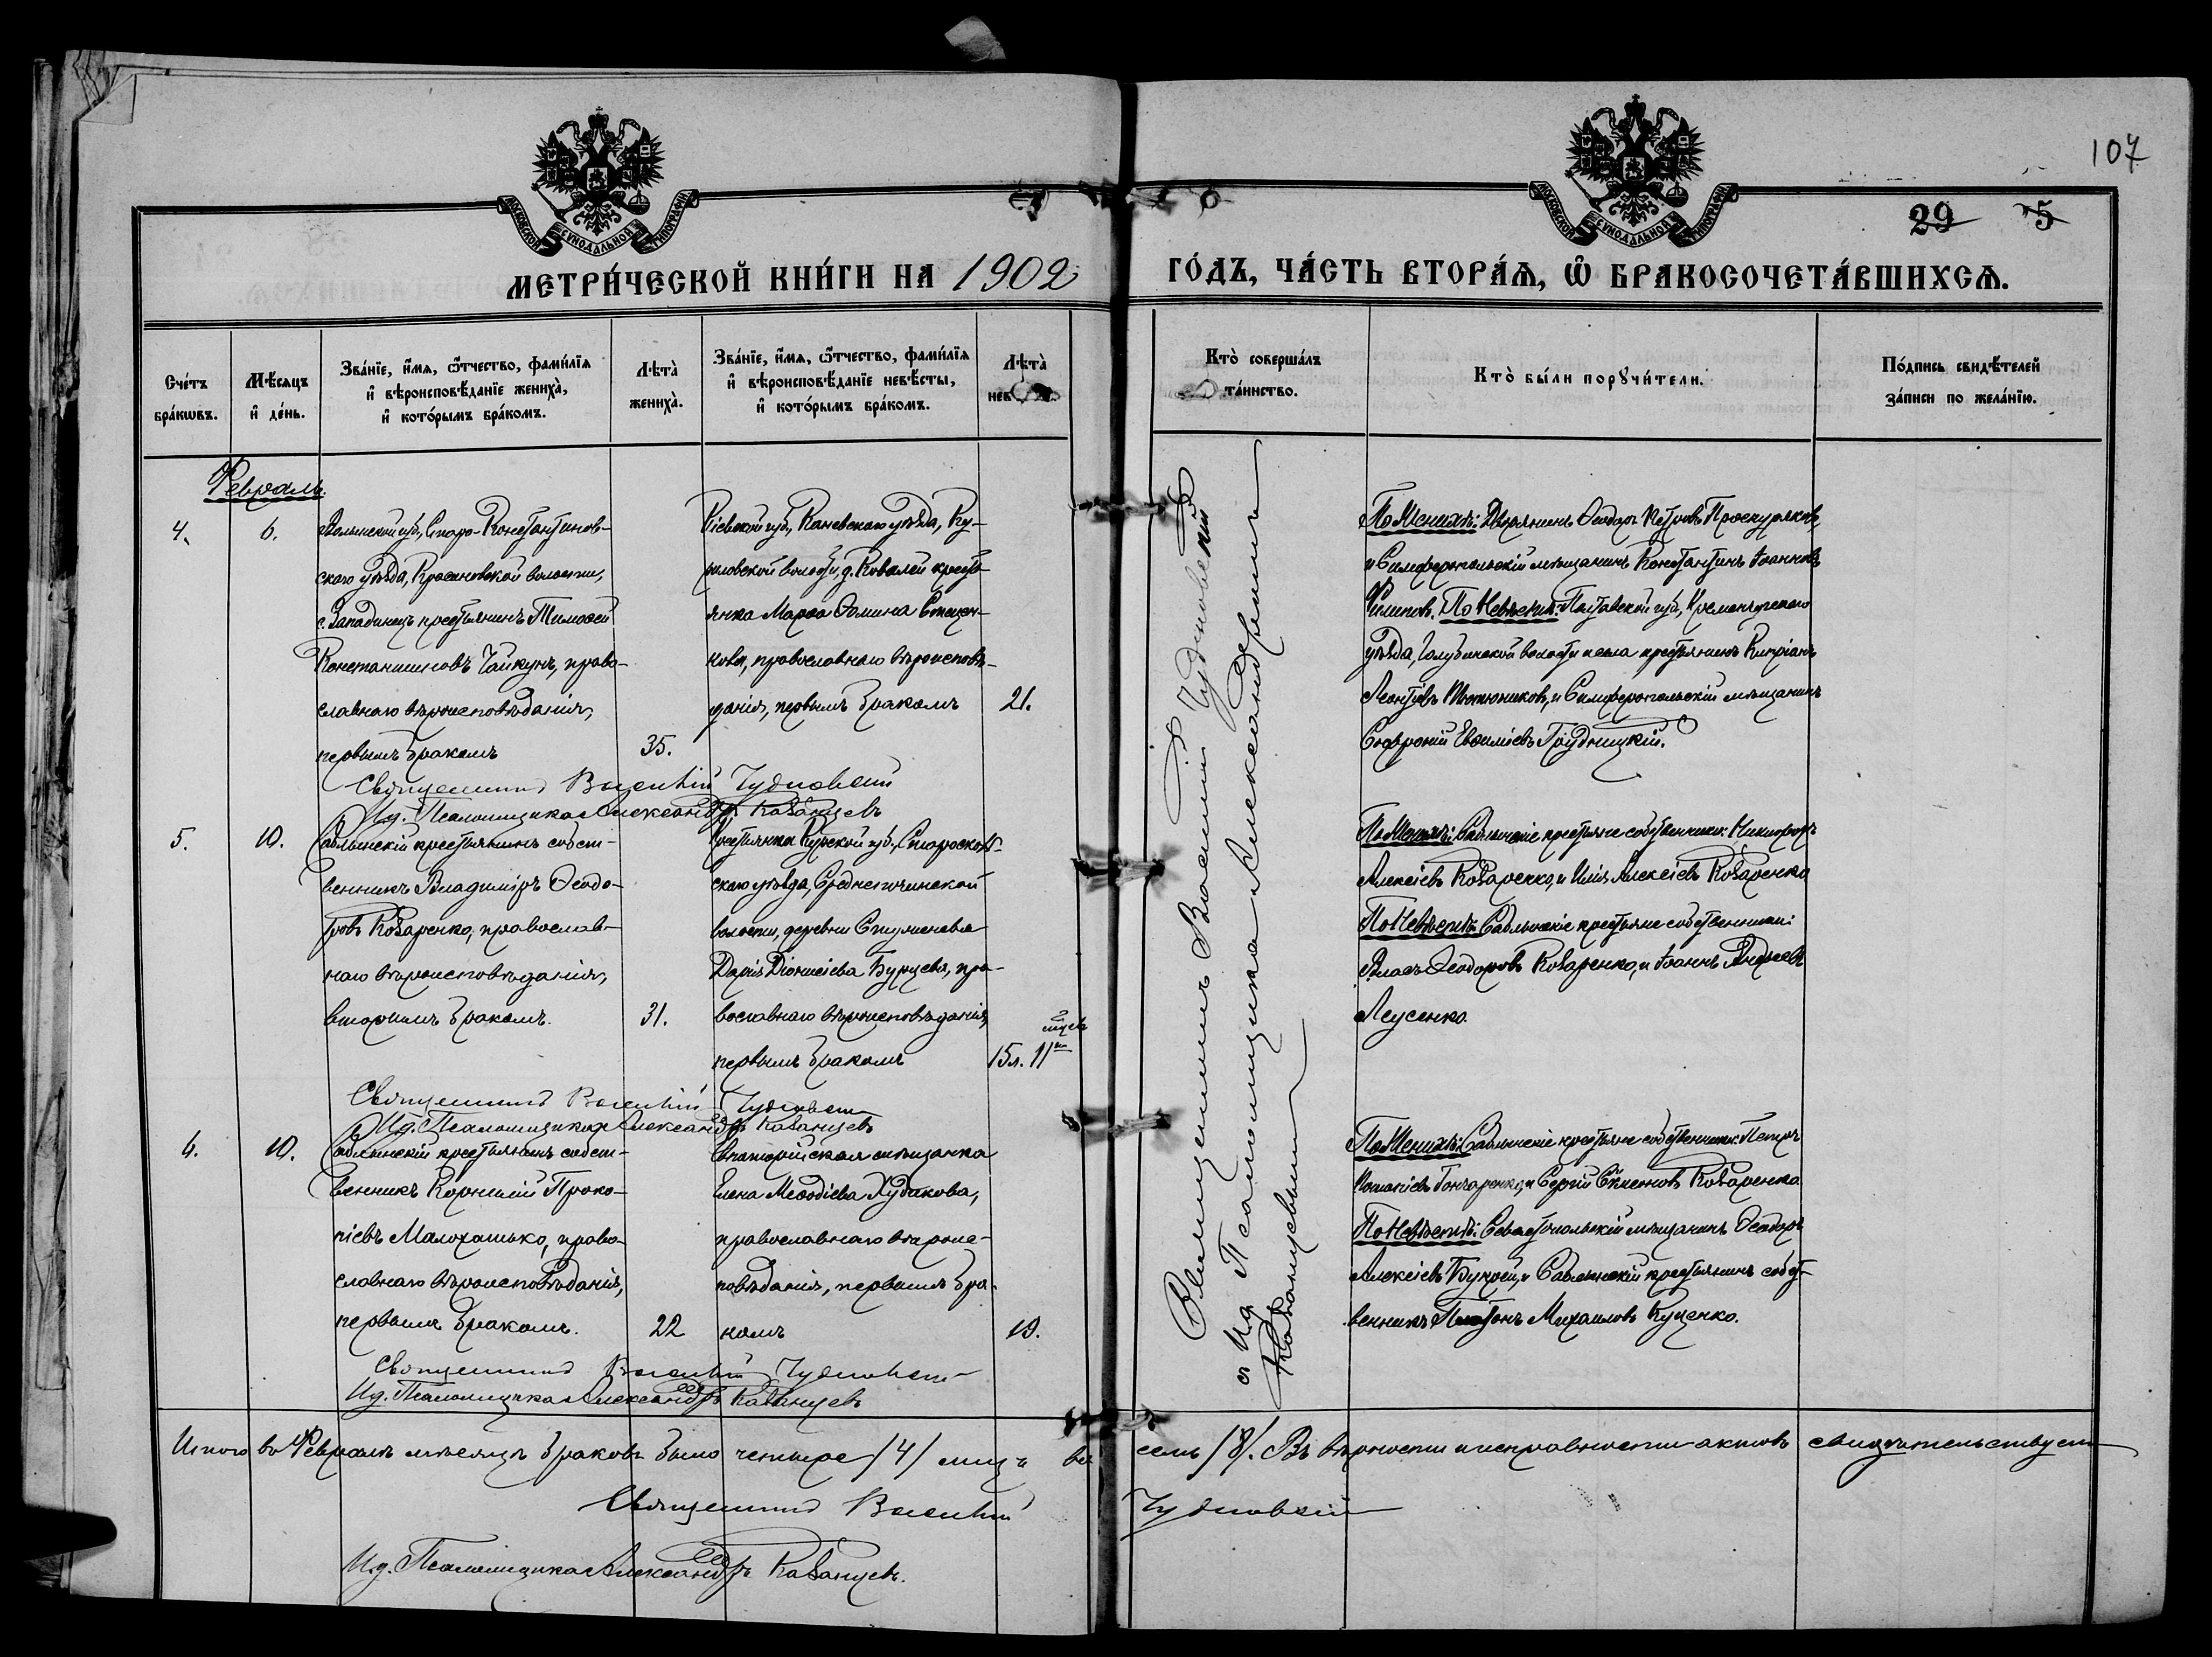 107
29 5
МОСКОВСКОЙ СѴНОДАЛЬНОЙ ТИПОГРАФІИ
МОСКОВСКОЙ СѴНОДАЛЬНОЙ ТИПОГРАФІИ
МЕТРИ́ЧЕСКОЙ КНИ́ГИ НА 1902 ГО́ДЪ, ЧА́СТЬ ВТОРА́Ѧ, Ѽ БРАКОСОЧЕТА́ВШИХСѦ.
Сче́тъ
бра́кѡвъ.
Мѣ́сѧцъ
и҆ де́нь.
Зва́нїе, и҆́мѧ, ѻ҆́тчество, фами́лїѧ
и҆ вѣроисповѣ́данїе женихà,
и҆ кото́рымъ бра́комъ.
Лѣтà
женихà.
Зва́нїе, и҆́мѧ, ѻ҆́тчество, фами́лїѧ
и҆ вѣроисповѣ́данїе невѣ́сты,
и҆ кото́рымъ бра́комъ.
Лѣтà
нев
Кто̀ соверша́лъ
та́инство.
Кто̀ бы́ли порꙋчи́тели.
По́дпись свидѣ́телей
за́писи по жела́нїю.
Февраль.
4.
6.
Волынской губ., Старо-Константинов-
скаго уѣзда, Красиловской волости,
с. Западинецъ крестьянинъ Тимоѳей
Константиновъ Чайкунъ, право-
славнаго вѣроисповѣданія,
первымъ бракомъ
35.
Кіевской губ., Каневскаго уѣзда, Ку-
риловской волости, д. Ковалей кресть-
янка Марѳа Ѳомина Стецен-
кова, православнаго вѣроисповѣ-
данія, первымъ бракомъ
21.
По Женихѣ: Дворянинъ Ѳеодоръ Петровъ Проскуряковъ,
и Симферопольскій мѣщанинъ Константинъ Іоанновъ
Филиповъ. По Невѣстѣ: Полтавской губ., Кременчугскаго
уѣзда, волости и села крестьянинъ Кипріанъ
Леонтіевъ и Симферопольскій мѣщанинъ
Софроній Евѳиміевъ Грудницкій.
Священникъ Василій Чудновскій
И.д. Псаломщика Александръ Казанцевъ
5.
10.
Саблынскій крестьянинъ собст-
венникъ Владиміръ Ѳеодо-
ровъ Козаренко, православ-
наго вѣроисповѣданія,
вторымъ бракомъ.
31.
Крестьянка Курской губ., Староосколь-
скаго уѣзда, волости, деревни
Дарія Діонисіева Бурцева, пра-
вославнаго вѣроисповѣданія,
первымъ бракомъ
15 л. 11 мѣсяцевъ
По Женихѣ: Саблынскіе крестьяне собственники: Никифоръ
Алексіевъ Козаренко, и Илія Алексіевъ Козаренко
По Невѣстѣ: Саблынскіе крестьяне собственники:
Власъ Ѳеодоровъ Козаренко, и Іоаннъ Андреевъ
Лусенко.
Священникъ Василій Чудновскій
И.д. Псаломщика Александръ Казанцевъ
6.
10.
Саблынскій крестьянинъ собст-
венникъ Корнилій Проко-
піевъ Малохатько, право-
славнаго вѣроисповѣданія,
первымъ бракомъ.
22
Евпаторійская мѣщанка
Елена Меѳодіева Худакова,
православнаго вѣроис-
повѣданія, первымъ бра-
комъ
19.
По Женихѣ: Саблынскіе крестьяне собственники: Петръ
Гончаренко, и Сергій Козаренко
По Невѣстѣ: Севастопольскій мѣщанинъ Ѳеодоръ
Алексіевъ и Саблынскій крестьянинъ собст-
венникъ Платонъ Михаиловъ Куценко.
Священникъ Василій Чудновскій
И.д. Псаломщика Александръ Казанцевъ
Священникъ Василій Чудновскій
съ И.д. Псаломщика Александромъ
Казанцевымъ
Итого въ Февралѣ мѣсяцѣ браковъ было четыре /4/ лицъ во семь /8/. Въ вѣрности и исправности актовъ свидѣтельствуемъ
Священникъ Василій Чудновскій
И.д. Псаломщика Александръ Казанцевъ.